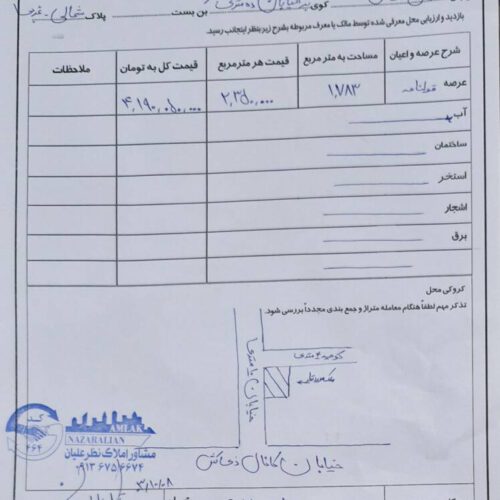 کوی خیابان ده متری بن بست پلاک شمالی - غربی
بازدید و ارزیابی محل معرفی شده توسط مالک یا معرف مربوطه بشرح زیر بنظر اینجانب رسید.
شرح عرصه و اعیان مساحت به متر مربع قیمت هر مترمربع قیمت کل به تومان ملاحظات
عرصه قولنامه ۱,۷۸۳ ۲,۳۵۰,۰۰۰ ۴,۱۹۰,۰۵۰,۰۰۰
آب
ساختمان
استخر
اشجار
برق
کروکی محل
تذکر مهم لطفاً هنگام معامله متراژ و جمع بندی مجدداً بررسی شود.
کوچه ۴ متری
خیابان ۱۰ متری
خیابان کانال
کد
۴۶۴
AMLAK
NAZARALIAN
مشاور املاک نظرعلیان
۰۹۱۳ ۶۷۵ ۶۶۷۴
۳/۱۰/۰۸